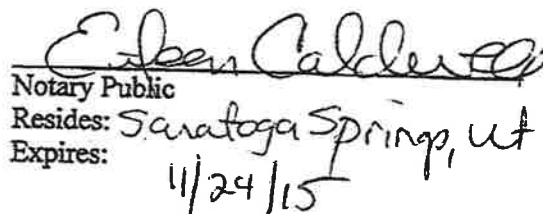 Eileen Caldwell
Notary Public
Resides: Saratoga Springs, Ut
Expires:
11/24/15